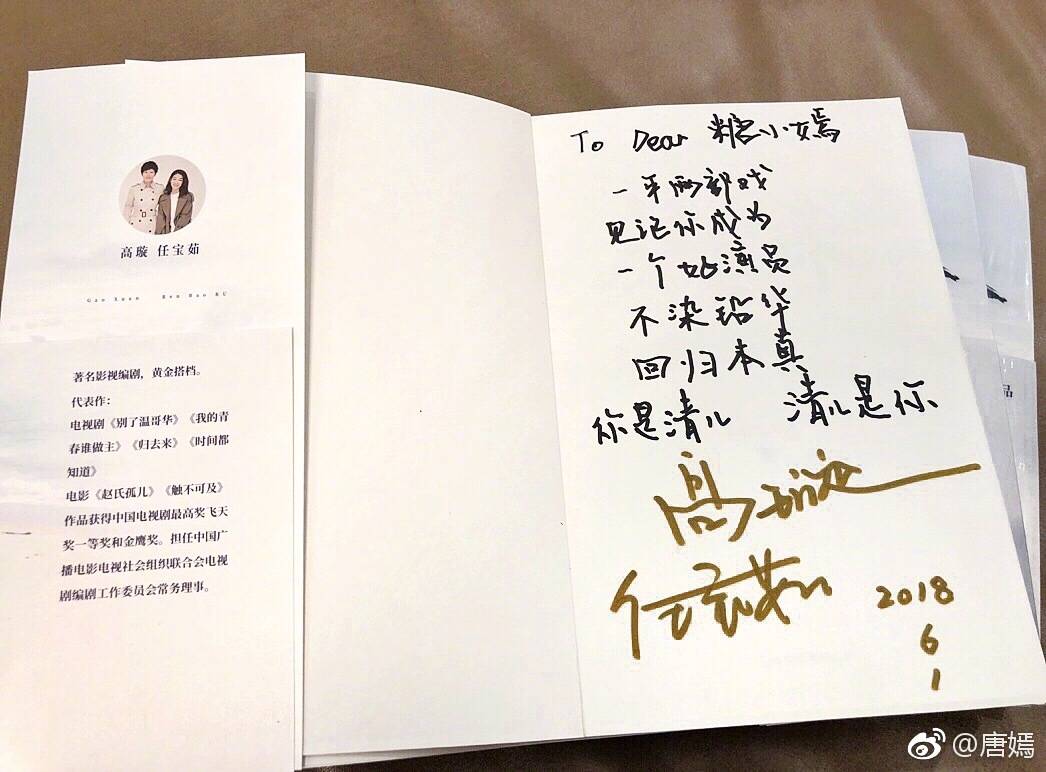 高璇 任宝茹
Gao Xuan Ren Bao RU
著名影视编剧，黄金搭档。
代表作：
电视剧《别了温哥华》《我的青
春谁做主》《归去来》《时间都
知道》
电影《赵氏孤儿》《触不可及》
作品获得中国电视剧最高奖飞天
奖一等奖和金鹰奖。担任中国广
播电影电视社会组织联合会电视
剧编剧工作委员会常务理事。
To Dear 糖小嫣
一年两部戏
见记你成为
一个好演员
不染铅华
回归本真
你是清儿 清儿是你
高璇
任宝茹
2018
6
1
品
@唐嫣